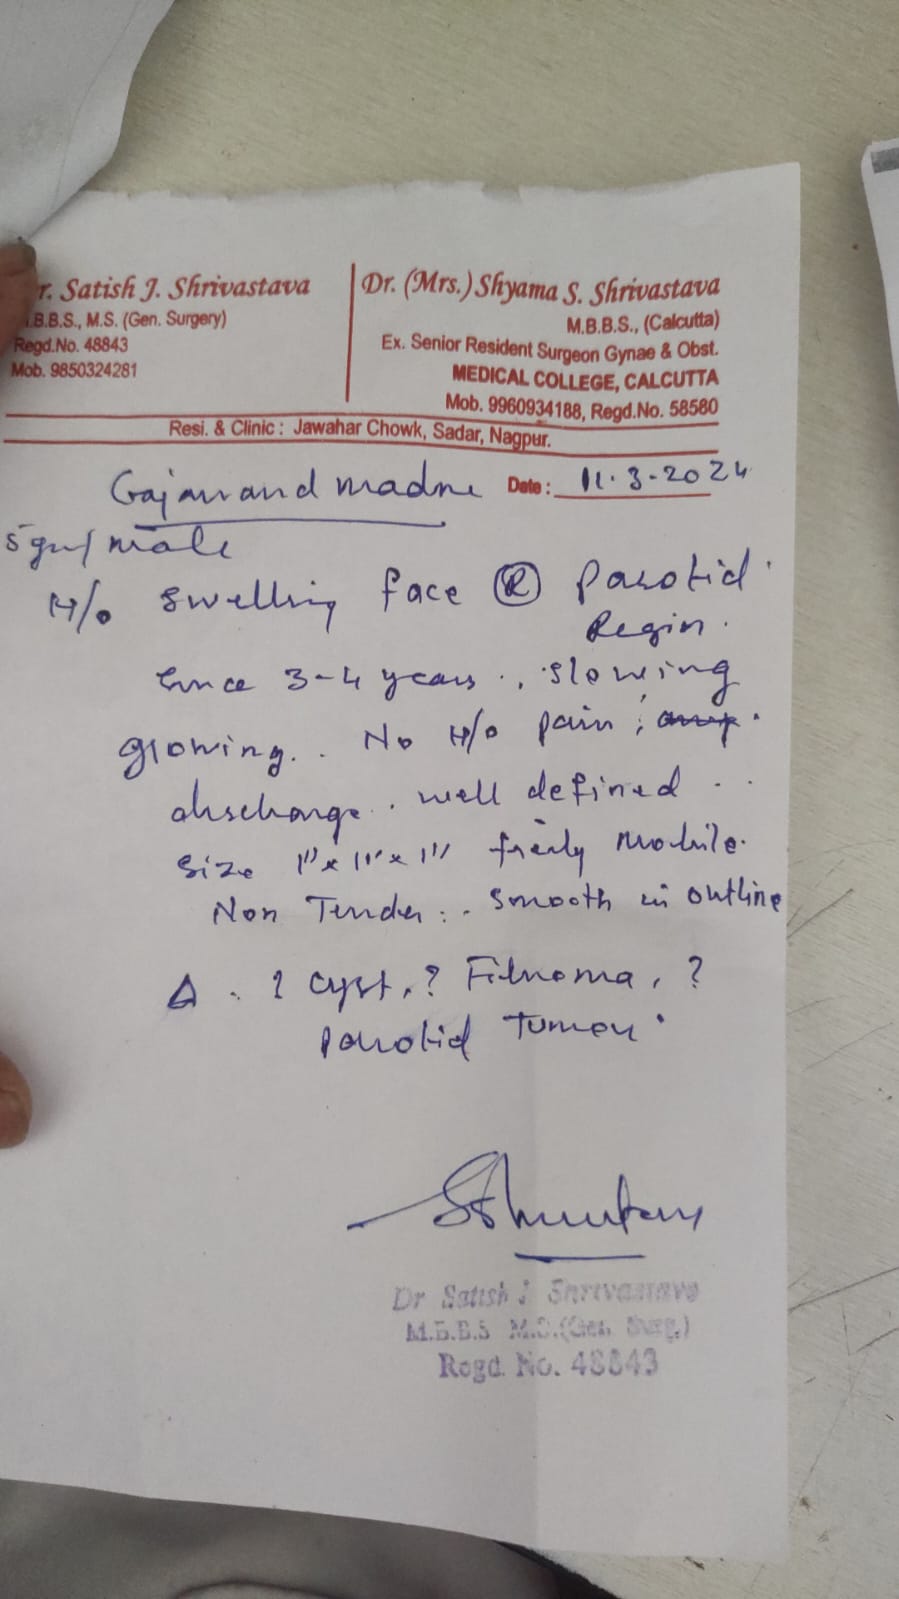 r. Satish J. Shrivastava
.B.B.S., M.S. (Gen. Surgery)
Regd.No. 48843
Mob. 9850324281
Dr. (Mrs.) Shyama S. Shrivastava
M.B.B.S., (Calcutta)
Ex. Senior Resident Surgeon Gynae & Obst.
MEDICAL COLLEGE, CALCUTTA
Mob. 9960934188, Regd.No. 58580
Resi. & Clinic : Jawahar Chowk, Sadar, Nagpur.
Date : 11.3-2024
male
H/o swelling face (R) Parotid
Region.
since 3-4 years . , slowing
growing. . No H/o pain ,
discharge . well defined . .
size 1"x 1"x 1" freely mobile.
Non Tender : . Smooth in outline
Δ . ? cyst, ? Fibroma, ?
parotid Tumour
Dr Satish J Shrivastava
M.B.B.S M.S.(Gen. Surg.)
Regd. No. 48843